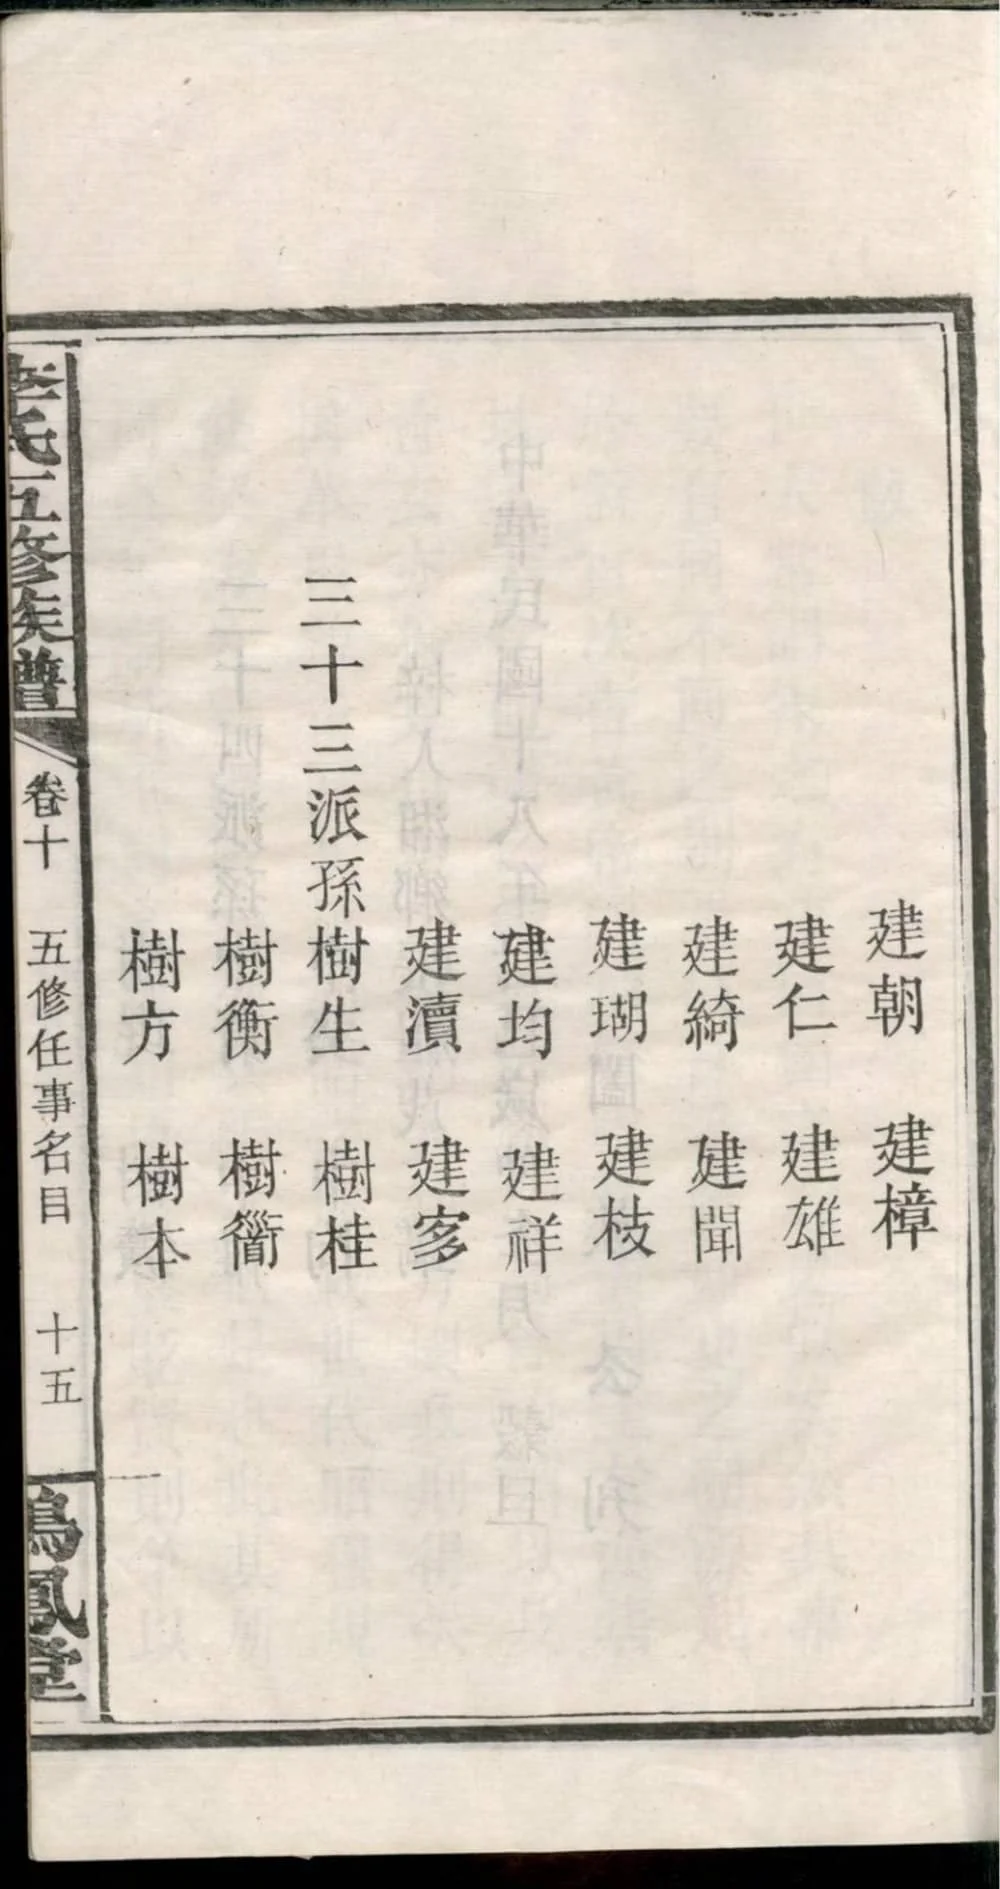 建朝 建樟
建仁 建雄
建綺 建聞
建瑚 建枝
建均 建祥
建瀆 建
三十三派孫 樹生 樹桂
樹衡 樹衟
樹方 樹本
李氏五修族譜 卷十 五修任事名目 十五 鳴鳳堂